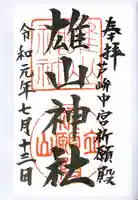 奉拝
芦峅中宮祈願殿
雄山神社
令和元年七月十三日